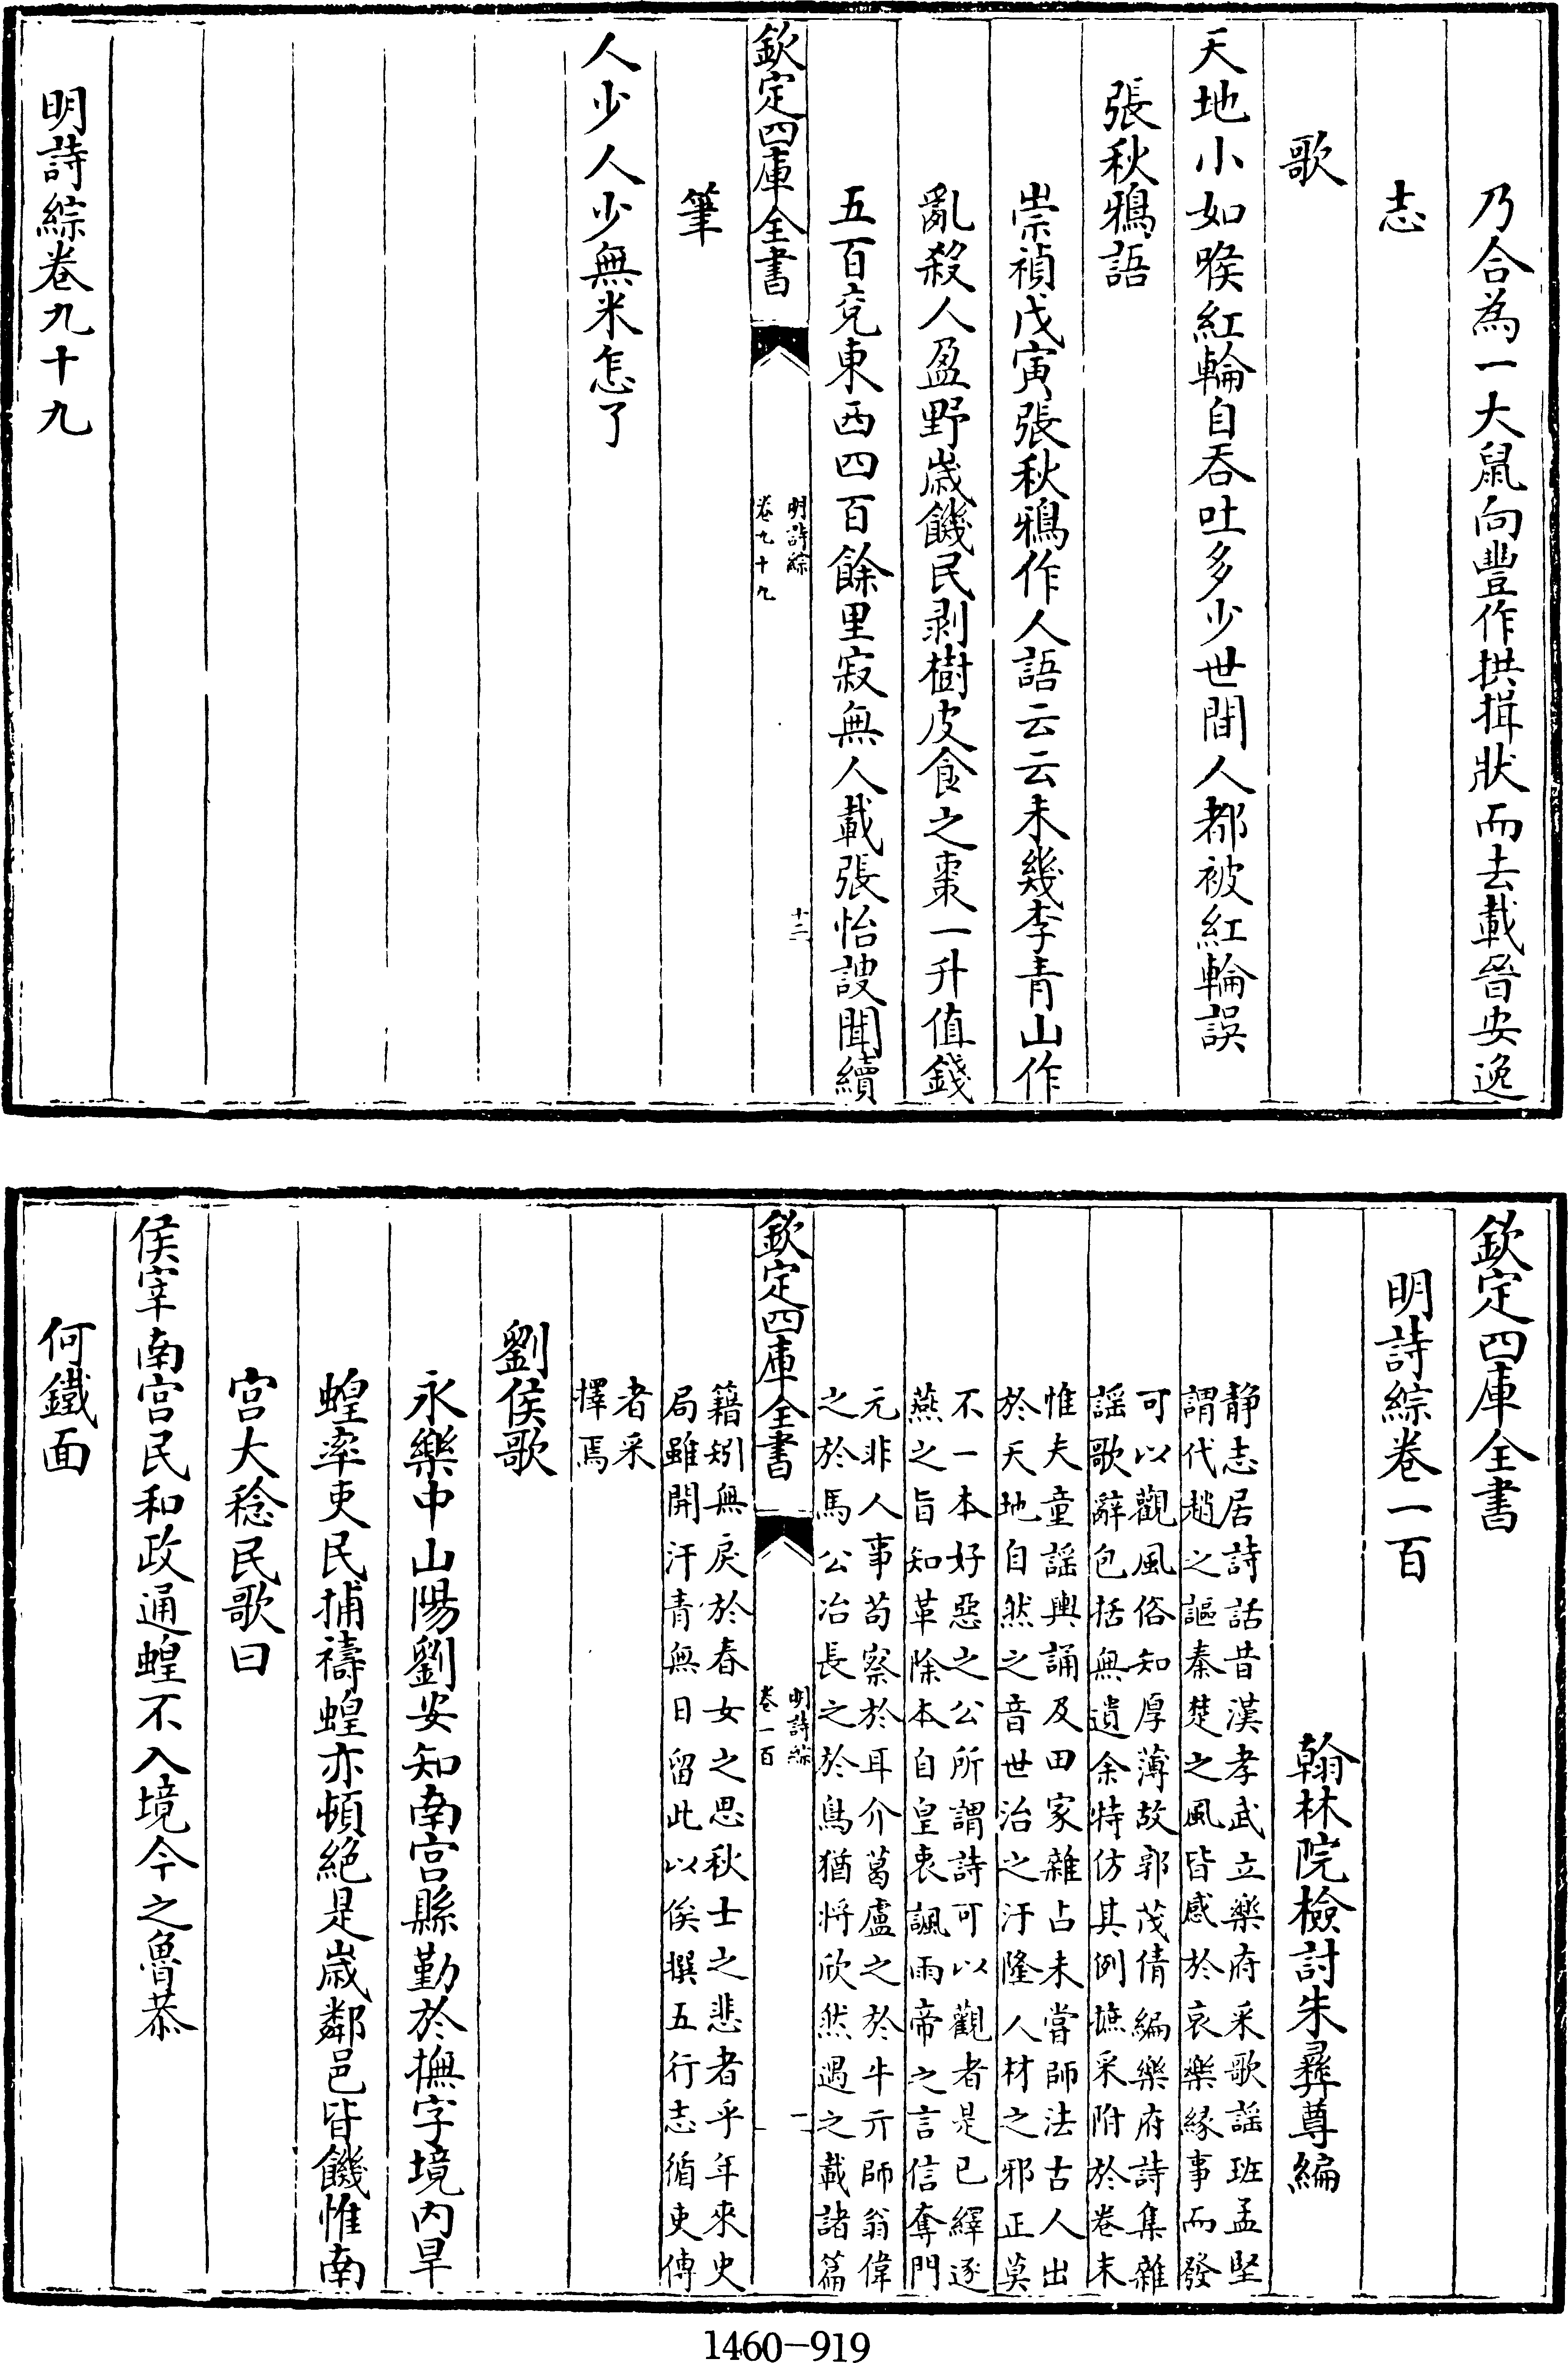 乃合為一大鼠向豐作拱揖狀而去載晉安逸
志
歌
天地小如喉紅輪自吞吐多少世間人都被紅輪誤
張秋鴉語
崇禎戊寅張秋鴉作人語云云未幾李青山作
亂殺人盈野歲饑民剥樹皮食之棗一升值錢
五百兗東西四百餘里寂無人載張怡謏聞續
欽定四庫全書
明詩綜
卷九十九
十二
筆
人少人少無米怎了
明詩綜卷九十九
欽定四庫全書
明詩綜卷一百
翰林院檢討朱彝尊編
静志居詩話昔漢孝武立樂府采歌謡班孟堅
謂代趙之謳秦楚之風皆感於哀樂緣事而發
可以觀風俗知厚薄故郭茂倩編樂府詩集雜
謡歌辭包括無遺余特仿其例摭采附於卷末
惟夫童謡輿誦及田家雜占未嘗師法古人出
於天地自然之音世治之汙隆人材之邪正莫
不一本好惡之公所謂詩可以觀者是已繹逐
燕之旨知革除本自皇衷諷雨帝之言信奪門
元非人事苟察於耳介葛盧之於牛亓師翁偉
之於馬公冶長之於鳥猶將欣然遇之載諸篇
欽定四庫全書
明詩綜
卷一百
一
籍矧無戾於春女之思秋士之悲者乎年來史
局雖開汗青無日留此以俟撰五行志循吏傳
者采
擇焉
劉侯歌
永樂中山陽劉安知南宫縣勤於撫字境内旱
蝗率吏民捕禱蝗亦頓絶是歲鄰邑皆饑惟南
宫大稔民歌曰
侯宰南宫民和政通蝗不入境今之魯恭
何鐵面
1460-919